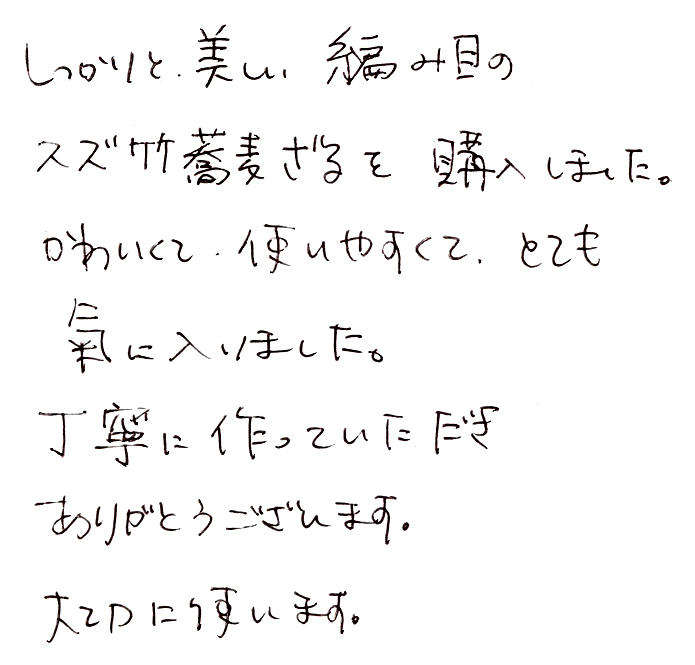 しっかりと、美しい編み目の
スズ竹蕎麦ざるを購入しました。
かわいくて、使いやすくて、とても
氣に入りました。
丁寧に作っていただき
ありがとうございます。
大切に使います。